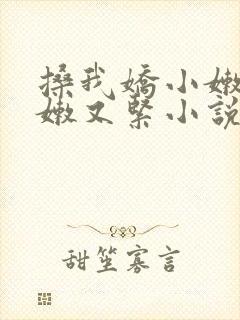 搡我嬌小嫩
嫩又緊小說
甜笙寡言